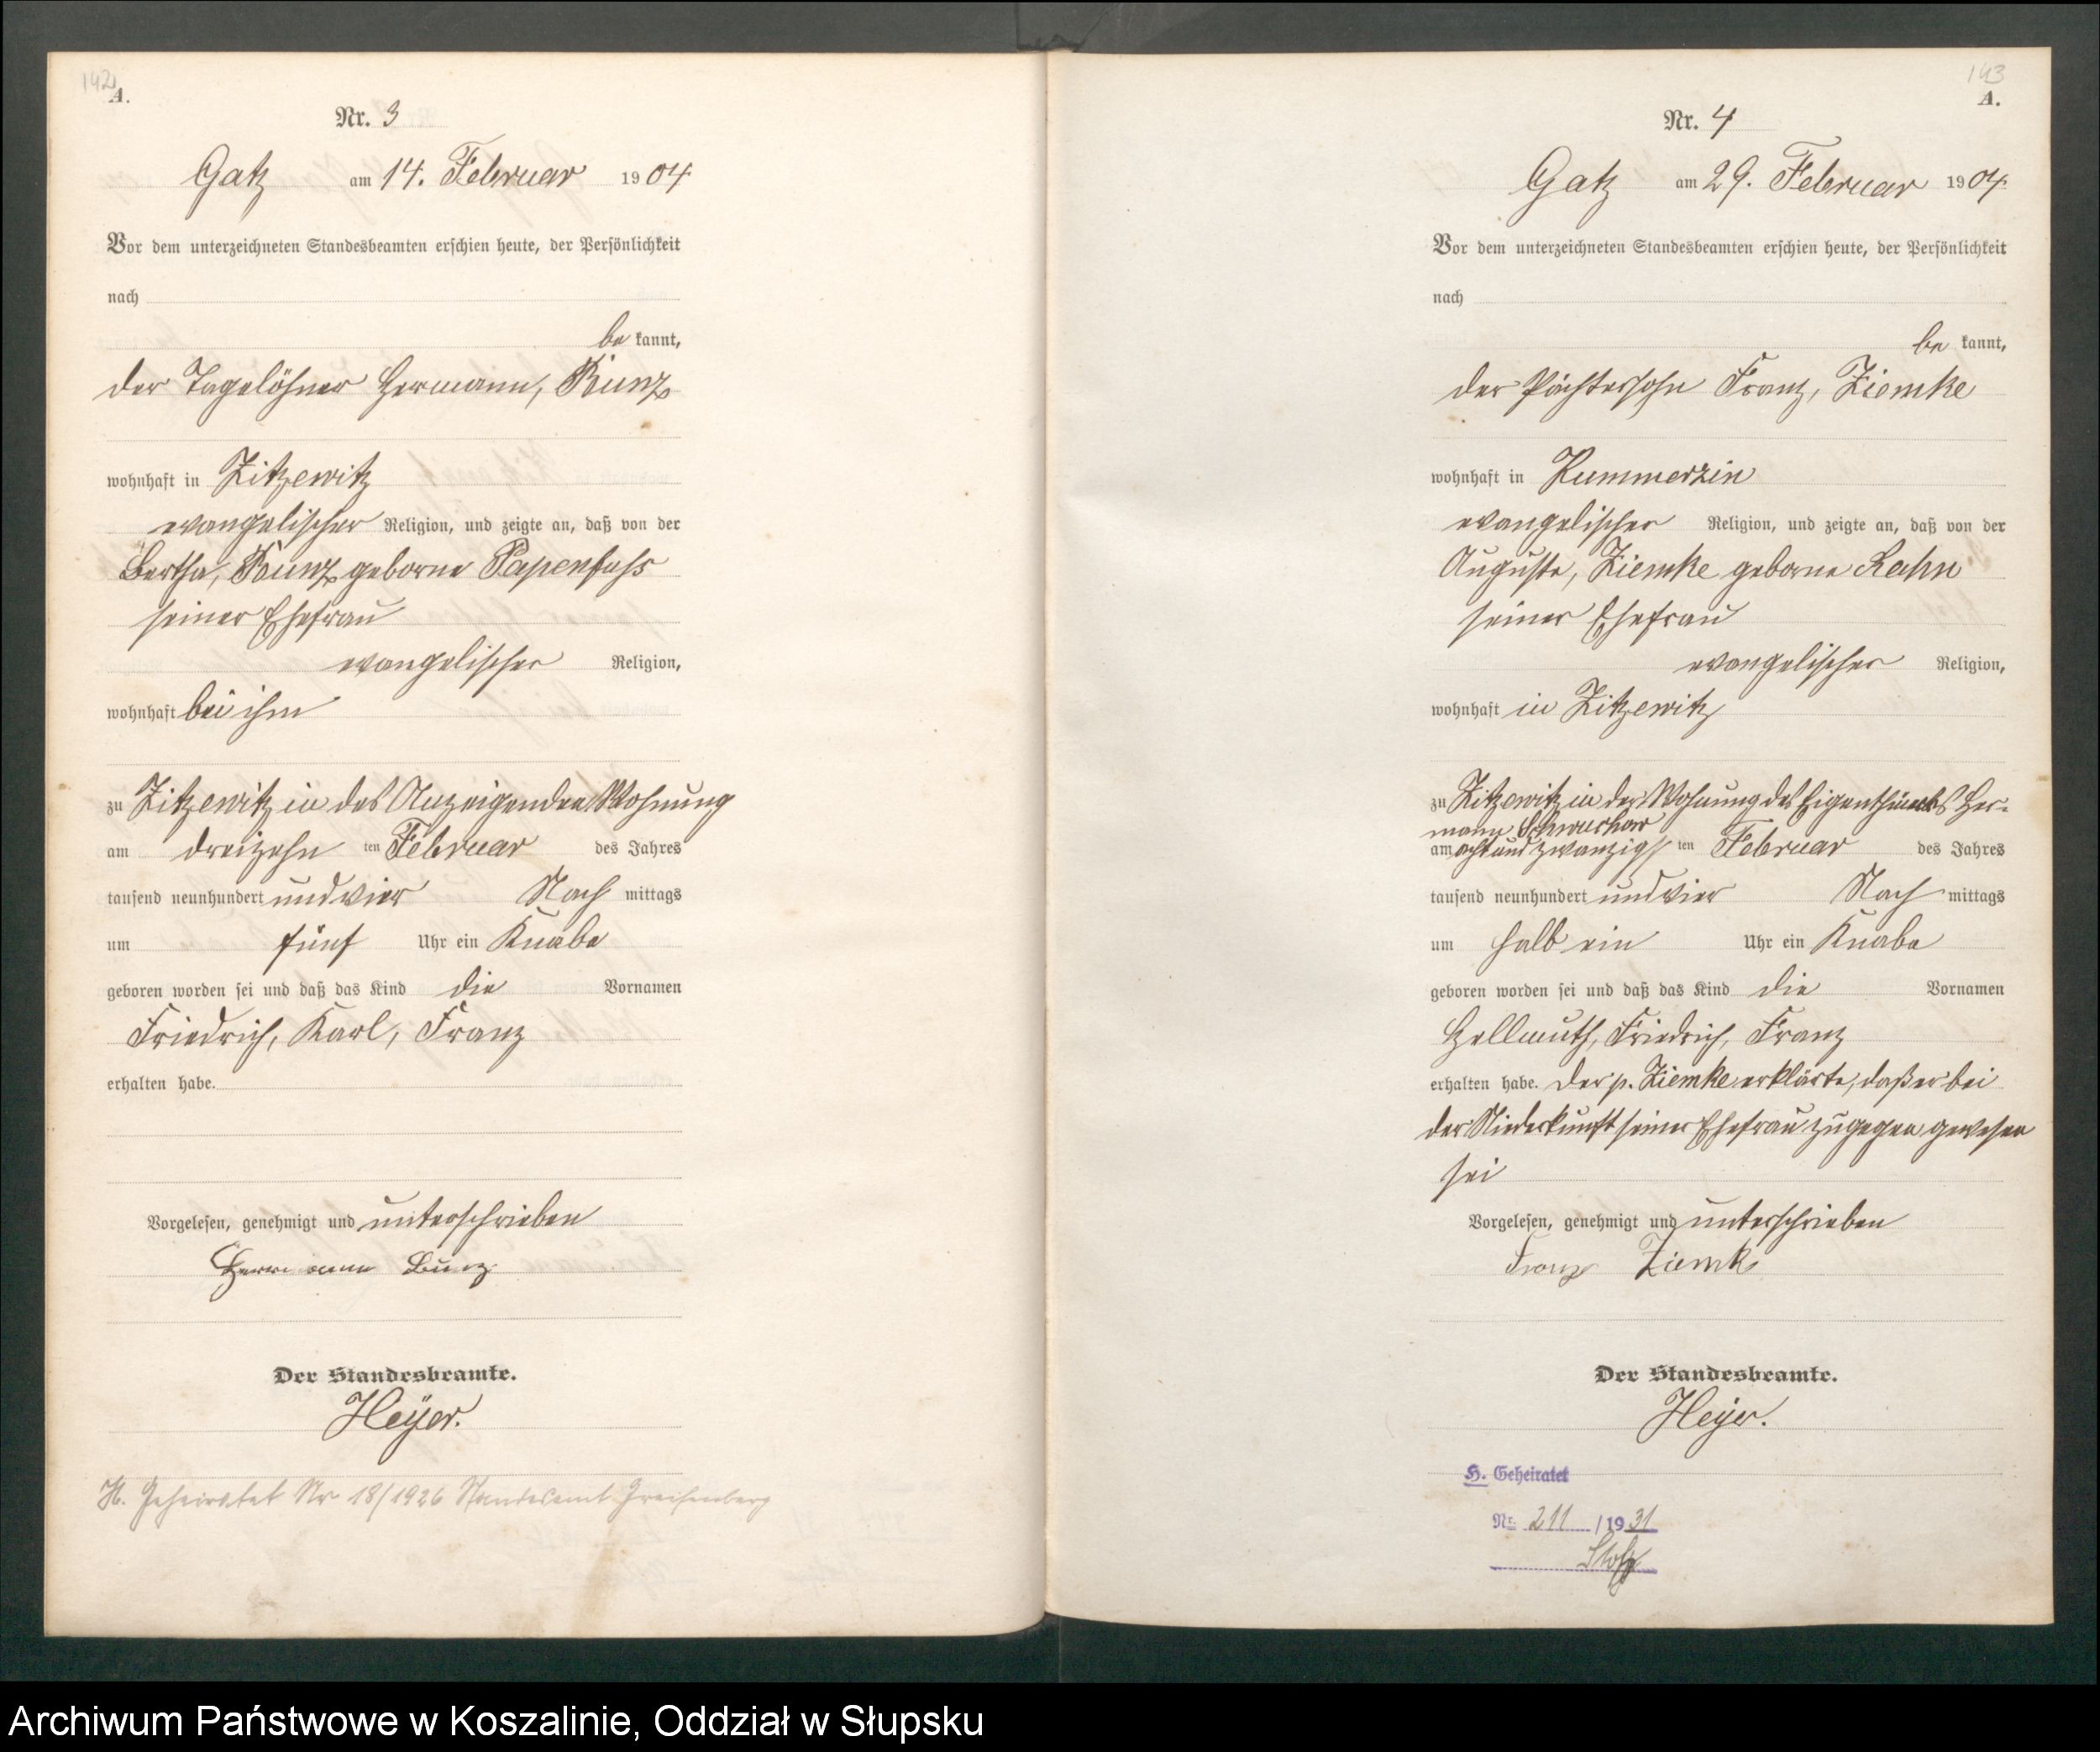 142
A.
Nr. 3
Gatz am 14. Februar 1904
Vor dem unterzeichneten Standesbeamten erschien heute, der Persönlichkeit
nach
be kannt,
der Tagelöhner Hermann, Kunz
wohnhaft in Zitzewitz
evangelischer Religion, und zeigte an, daß von der
Bertha, Kunz geborne Papenfuhs
seiner Ehefrau
evangelischer Religion,
wohnhaft bei ihm
zu Zitzewitz in des Anzeigenden Wohnung
am dreizehn ten Februar des Jahres
tausend neunhundert und vier Nach mittags
um fünf Uhr ein Knabe
geboren worden sei und daß das Kind die Vornamen
Friedrich, Karl, Franz
erhalten habe.
Vorgelesen, genehmigt und unterschrieben
Hermann
Der Standesbeamte.
Heyer.
H. Geheiratet Nr 18/1926 Standesamt Greifenberg
143
A.
Nr. 4
Gatz am 29. Februar 1904
Vor dem unterzeichneten Standesbeamten erschien heute, der Persönlichkeit
nach
be kannt,
der Pächtersohn Franz, Ziemke
wohnhaft in Kummerzin
evangelischer Religion, und zeigte an, daß von der
Auguste, Ziemke geborne Rahn
seiner Ehefrau
evangelischer Religion,
wohnhaft in Zitzewitz
zu Zitzewitz in der Wohnung des Eigenthümers Her-
mann Schwuchow
am acht und zwanzigs ten Februar des Jahres
tausend neunhundert und vier Nach mittags
um halb ein Uhr ein Knabe
geboren worden sei und daß das Kind die Vornamen
Hellmuth, Friedrich, Franz
erhalten habe. Der p. Ziemke erklärte, daß er bei
der Niederkunft seiner Ehefrau zugegen gewesen
sei
Vorgelesen, genehmigt und unterschrieben
Franz Ziemke
Der Standesbeamte.
Heyer.
H. Geheiratet
Nr. 211 /1931
Stolp
Archiwum Państwowe w Koszalinie, Oddział w Słupsku